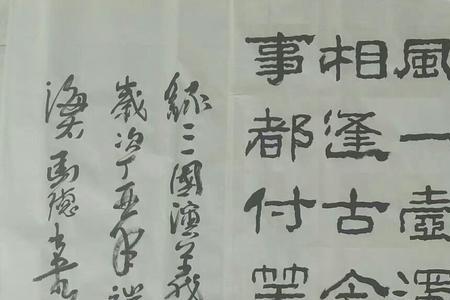 風一壺濁
相逢古今
事都付笑
錄三國演義
歲次丁亥年
海天馬德書